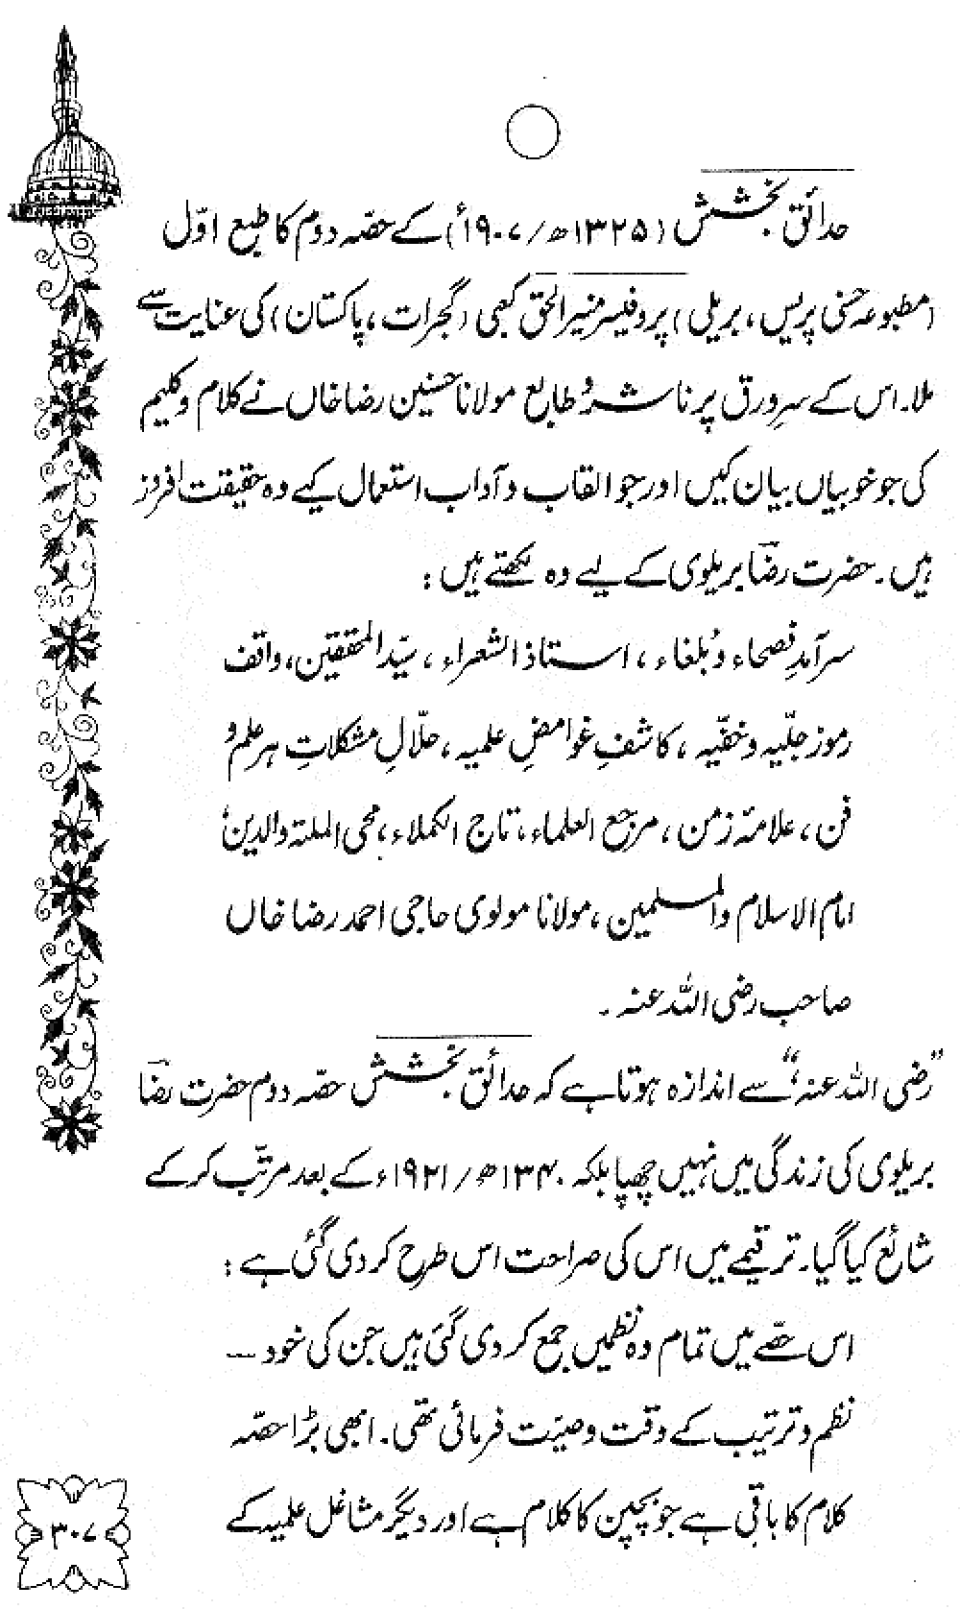 حدائق بخشش (۱۳۲۵ھ/۱۹۰۷ء) کے حصّہ دوم کا طبع اوّل
(مطبوعہ حسنی پریس، بریلی) پروفیسر منیر الحق کعبی (گجرات، پاکستان) کی عنایت سے
ملا۔ اس کے سرورق پر ناشر و طابع مولانا حسنین رضا خاں نے کلام و کلیم
کی جو خوبیاں بیان کیں اور جو القاب و آداب استعمال کیے وہ حقیقت افروز
ہیں۔ حضرت رضاؔ بریلوی کے لیے وہ لکھتے ہیں :
سرآمدِ فصحاء و بُلغاء، استاذ الشعراء، سیّد المحققین، واقف
رموز جلّیہ و خفّیہ، کاشفِ غوامضِ علمیہ، حلّالِ مشکلاتِ ہر علم و
فن، علامۂ زمن، مرجع العلماء، تاج الکملاء، محی الملۃ والدین،
امام الاسلام والمسلمین، مولانا مولوی حاجی احمد رضا خاں
صاحب رضی اللہ عنہ۔
”رضی اللہ عنہ“ سے اندازہ ہوتا ہے کہ حدائق بخشش حصّہ دوم حضرت رضاؔ
بریلوی کی زندگی میں نہیں چھپا بلکہ ۱۳۴۰ھ/۱۹۲۱ء کے بعد مرتّب کر کے
شائع کیا گیا۔ ترقیمے میں اس کی صراحت اس طرح کر دی گئی ہے :
اس حصّے میں تمام وہ نظمیں جمع کر دی گئی ہیں جن کی خود —
نظم و ترتیب کے وقت وصیّت فرمائی تھی۔ ابھی بڑا حصّہ
کلام کا باقی ہے جو بچپن کا کلام ہے اور دیگر مشاغل علمیہ کے
۳۰۷